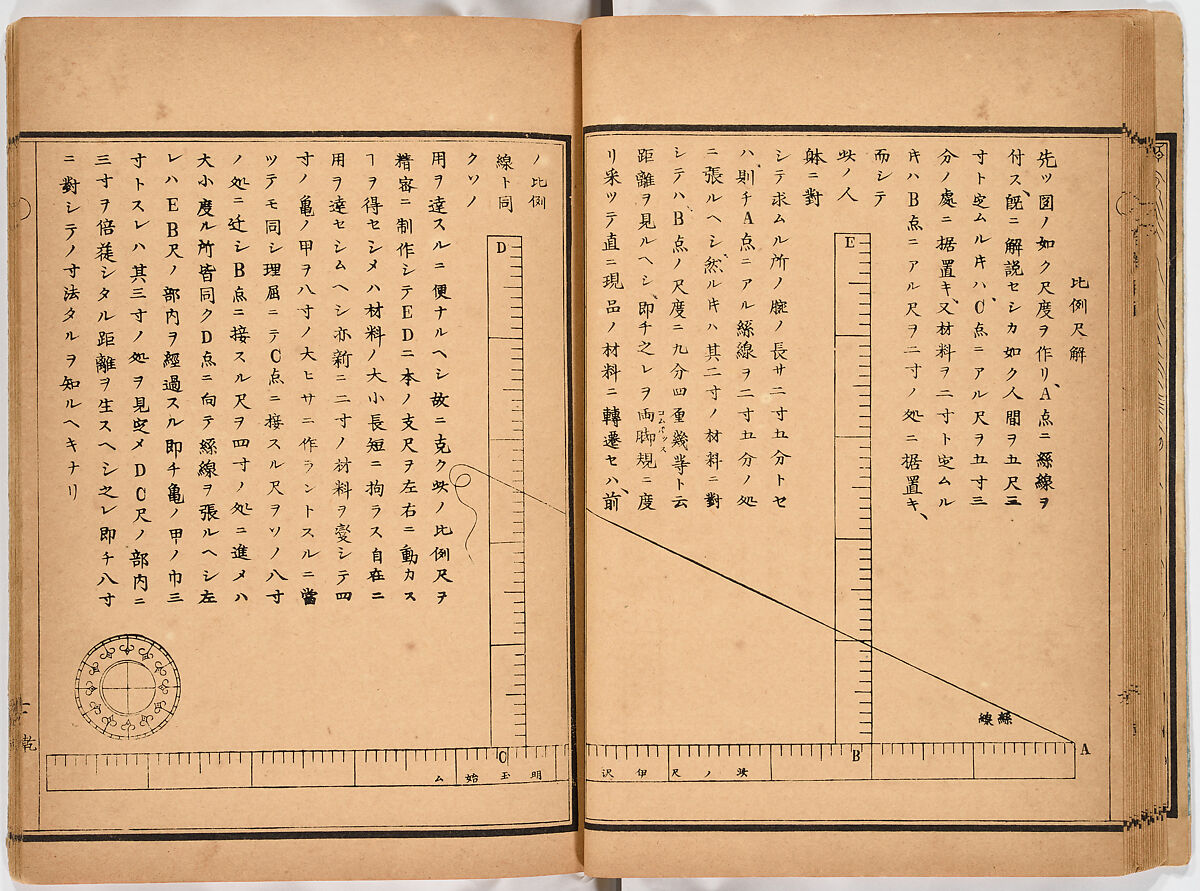 比例尺解
先ツ図ノ如ク尺度ヲ作リ、A点ニ絲線ヲ
付ス、既ニ解説セシカ如ク人間ヲ五尺三
寸ト定ムル片ハ、C点ニアル尺ヲ五寸三
分ノ處ニ据置キ、又材料ヲ二寸ト定ムル
片ハB点ニアル尺ヲ二寸ノ処ニ据置キ、
而シテ
此ノ人
躰ニ對
シテ求ムル所ノ腕ノ長サ二寸五分トセ
ハ、則チA点ニアル絲線ヲ二寸五分ノ処
ニ張ルヘシ、然ル片ハ其二寸ノ材料ニ對
シテハB点ノ尺度ニ九分四重幾等ト云
距離ヲ見ルヘシ、即チ之レヲ両脚規ニ度
コムパッス
リ采ツテ直ニ現品ノ材料ニ轉遷セハ、前
E
B
A
絲線
此ノ尺伊沢
ノ比例
線ト同
クソノ
用ヲ達スルニ便ナルヘシ故ニ克ク此ノ比例尺ヲ
精密ニ制作シテED二本ノ支尺ヲ左右ニ動カス
ヿヲ得セシメハ材料ノ大小長短ニ拘ラス自在ニ
用ヲ達セシムヘシ亦新ニ二寸ノ材料ヲ変シテ四
寸ノ亀ノ甲ヲ八寸ノ大ヒサニ作ラントスルニ當
ツテモ同シ理屈ニテC点ニ接スル尺ヲソノ八寸
ノ処ニ迁シB点ニ接スル尺ヲ四寸ノ処ニ進メハ
大小度ル所皆同クD点ニ向テ絲線ヲ張ルヘシ左
レハEB尺ノ部内ヲ經過スル即チ亀ノ甲ノ巾三
寸トスレハ其三寸ノ処ヲ見定メDC尺ノ部内ニ
三寸ヲ倍蓰シタル距離ヲ生スヘシ之レ即チ八寸
ニ對シテノ寸法タルヲ知ルヘキナリ
D
C
明玉始ム
乾